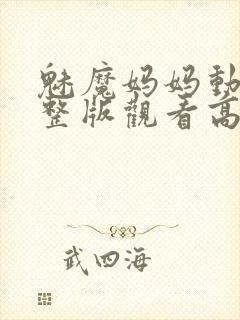 魅魔妈妈動
整版觀看高
武四海